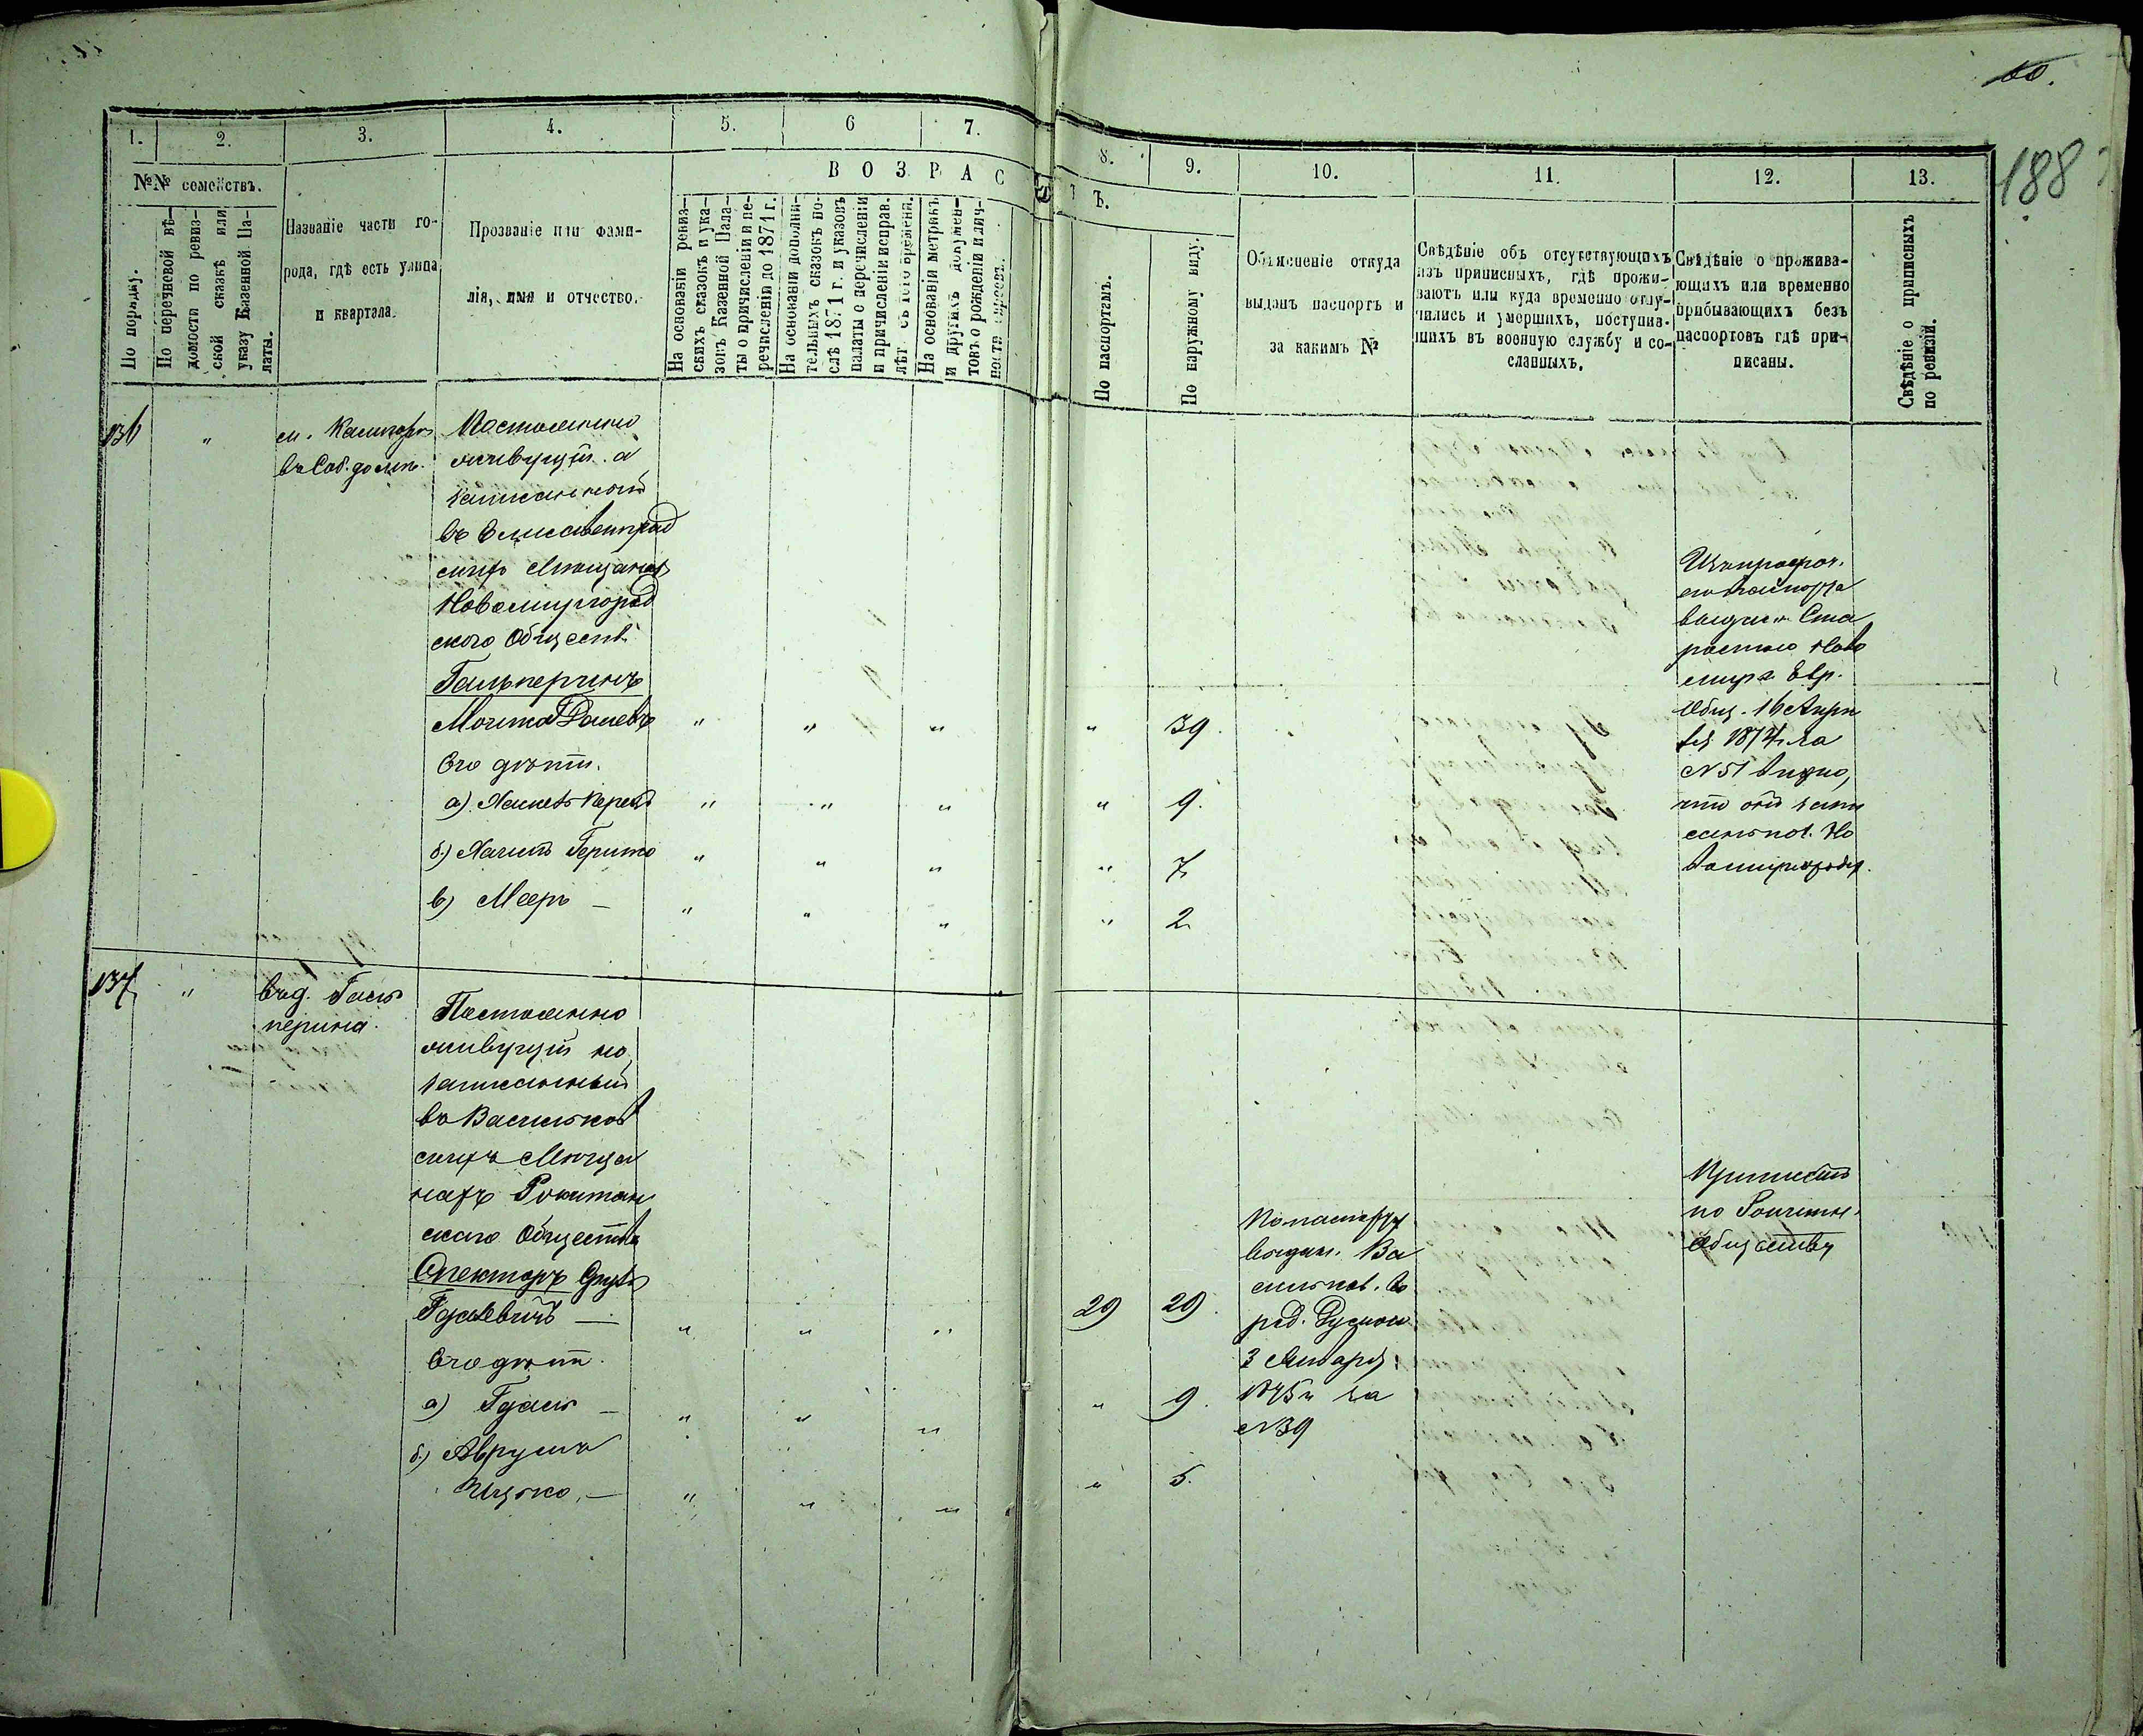 188
1.
2.
3.
4.
5.
6
7.
8.
9.
10.
11.
12.
13.
№№ семействъ.
По порядку.
По перечневой вѣ-
домости по ревиз-
ской сказкѣ или
указу Казенной Па-
латы.
Названіе части го-
рода, гдѣ есть улица
и квартала.
Прозваніе или фами-
лія, имя и отчество.
ВОЗРАС
ТЪ.
На основаніи ревиз-
скихъ сказокъ и ука-
зовъ Казенной Пала-
ты о причисленіи и пе-
речисленіи до 1871 г.
На основаніи дополни-
тельныхъ сказокъ по-
слѣ 1871 г. и указовъ
палаты о перечисленіи
и причисленіи исправ.
лѣт съ того времени.
На основаніи метрикъ
и другихъ докумен-
товъ о рожденіи и лич-
ности
По паспортамъ.
По наружному виду.
Объясненіе откуда
выданъ паспортъ и
за какимъ №
Свѣдѣніе объ отсутствующихъ
изъ приписныхъ, гдѣ прожи-
ваютъ или куда временно отлу-
чились и умершихъ, поступив-
шихъ въ военную службу и со-
сланныхъ.
Свѣдѣніе о прожива-
ющихъ или временно
прибывающихъ безъ
паспортовъ гдѣ при-
писаны.
Свѣдѣніе о приписныхъ
по ревизіи.
136
"
м.
въ Соб. домѣ.
Постоянно
живущій а
записанной
въ Елисаветград
скихъ Мѣщанахъ
Новомиргород
скаго Обществ.
Гальперинъ
Мошко
" " " " 39.
Его дѣти.
а)
" " " " 9.
б.) Хаимъ Гершко
" " " " 7
в) Мееръ —
" " " " 2
паспорта
выдан. Ста
ростою Ново
мирг. Евр.
Общ. 16 Апрѣ
ля 1874 за
№ 51 видно,
что онъ запи
санъ по Но
вомиргороду.
137
"
въ д. Галь
перина.
Постоянно
живущій но
записанный
въ Васильков
скихъ Мѣща
нахъ Рокитян
скаго Общества
Спекторъ
Гдалевичъ —
" " " 29 29.
Его дѣти.
а) Гдаль —
" " " " 9.
б.) Аврумъ
Ицько, —
" " " " 5.
По паспорту
выдан. Ва
сильков. Го
род. Думою
3 Января
1875 г. за
№ 39
Приписанъ
по Рокитян.
Обществу